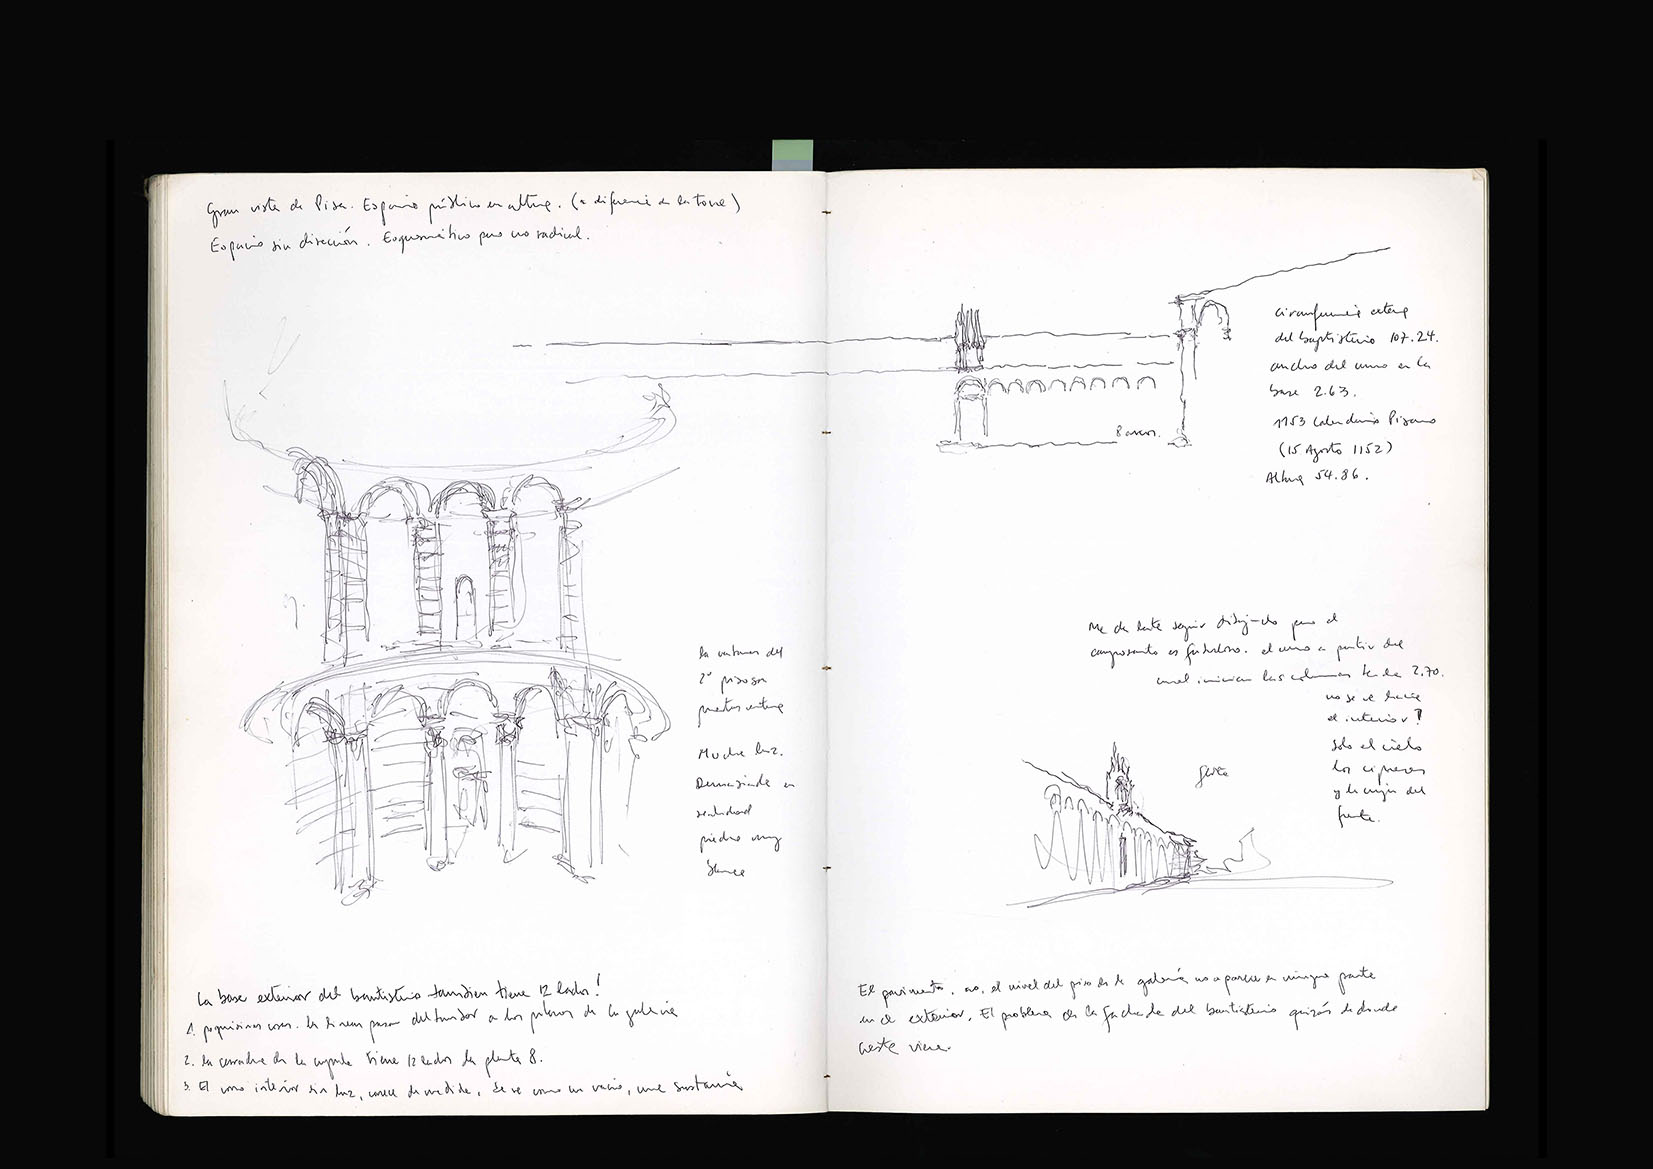 Gran vista de Pisa. Espacio público en altura. (a diferencia de la torre)
Espacio sin dirección. Esquemático pero no radical.
la ventanas del
2º piso son
puertas
Mucha luz.
Demasiada en
realidad
piedra muy
blanca
La base exterior del bautisterio tambien tiene 12 lados!
1. poquisimas cosas. la linea pasa del tambor a los pilares de la galeria
2. la cerradura de la cupula tiene 12 lados la planta 8.
3. El cono interior sin luz, carece de medida, se ve como un vacio, una sustancia
8 arcos.
circunferencia externa
del baptisterio 107.24.
ancho del muro en la
base 2.63.
1153 Calendario Pisano
(15 Agosto 1152)
Altura 54.86.
Me da lata seguir dibujando pero el
camposanto es fabuloso. el muro a partir del
cual inician las columnas 2.70.
no se ve hacia
el interior?
solo el cielo
los cipreses
y la del
frente.
El pavimento, no, el nivel del piso de la galería no aparece en ninguna parte
en el exterior. El problema de la fachada del bautisterio quizás de donde
viene.